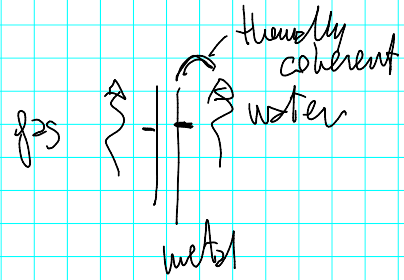 thermally
coherent
gas
water
metal